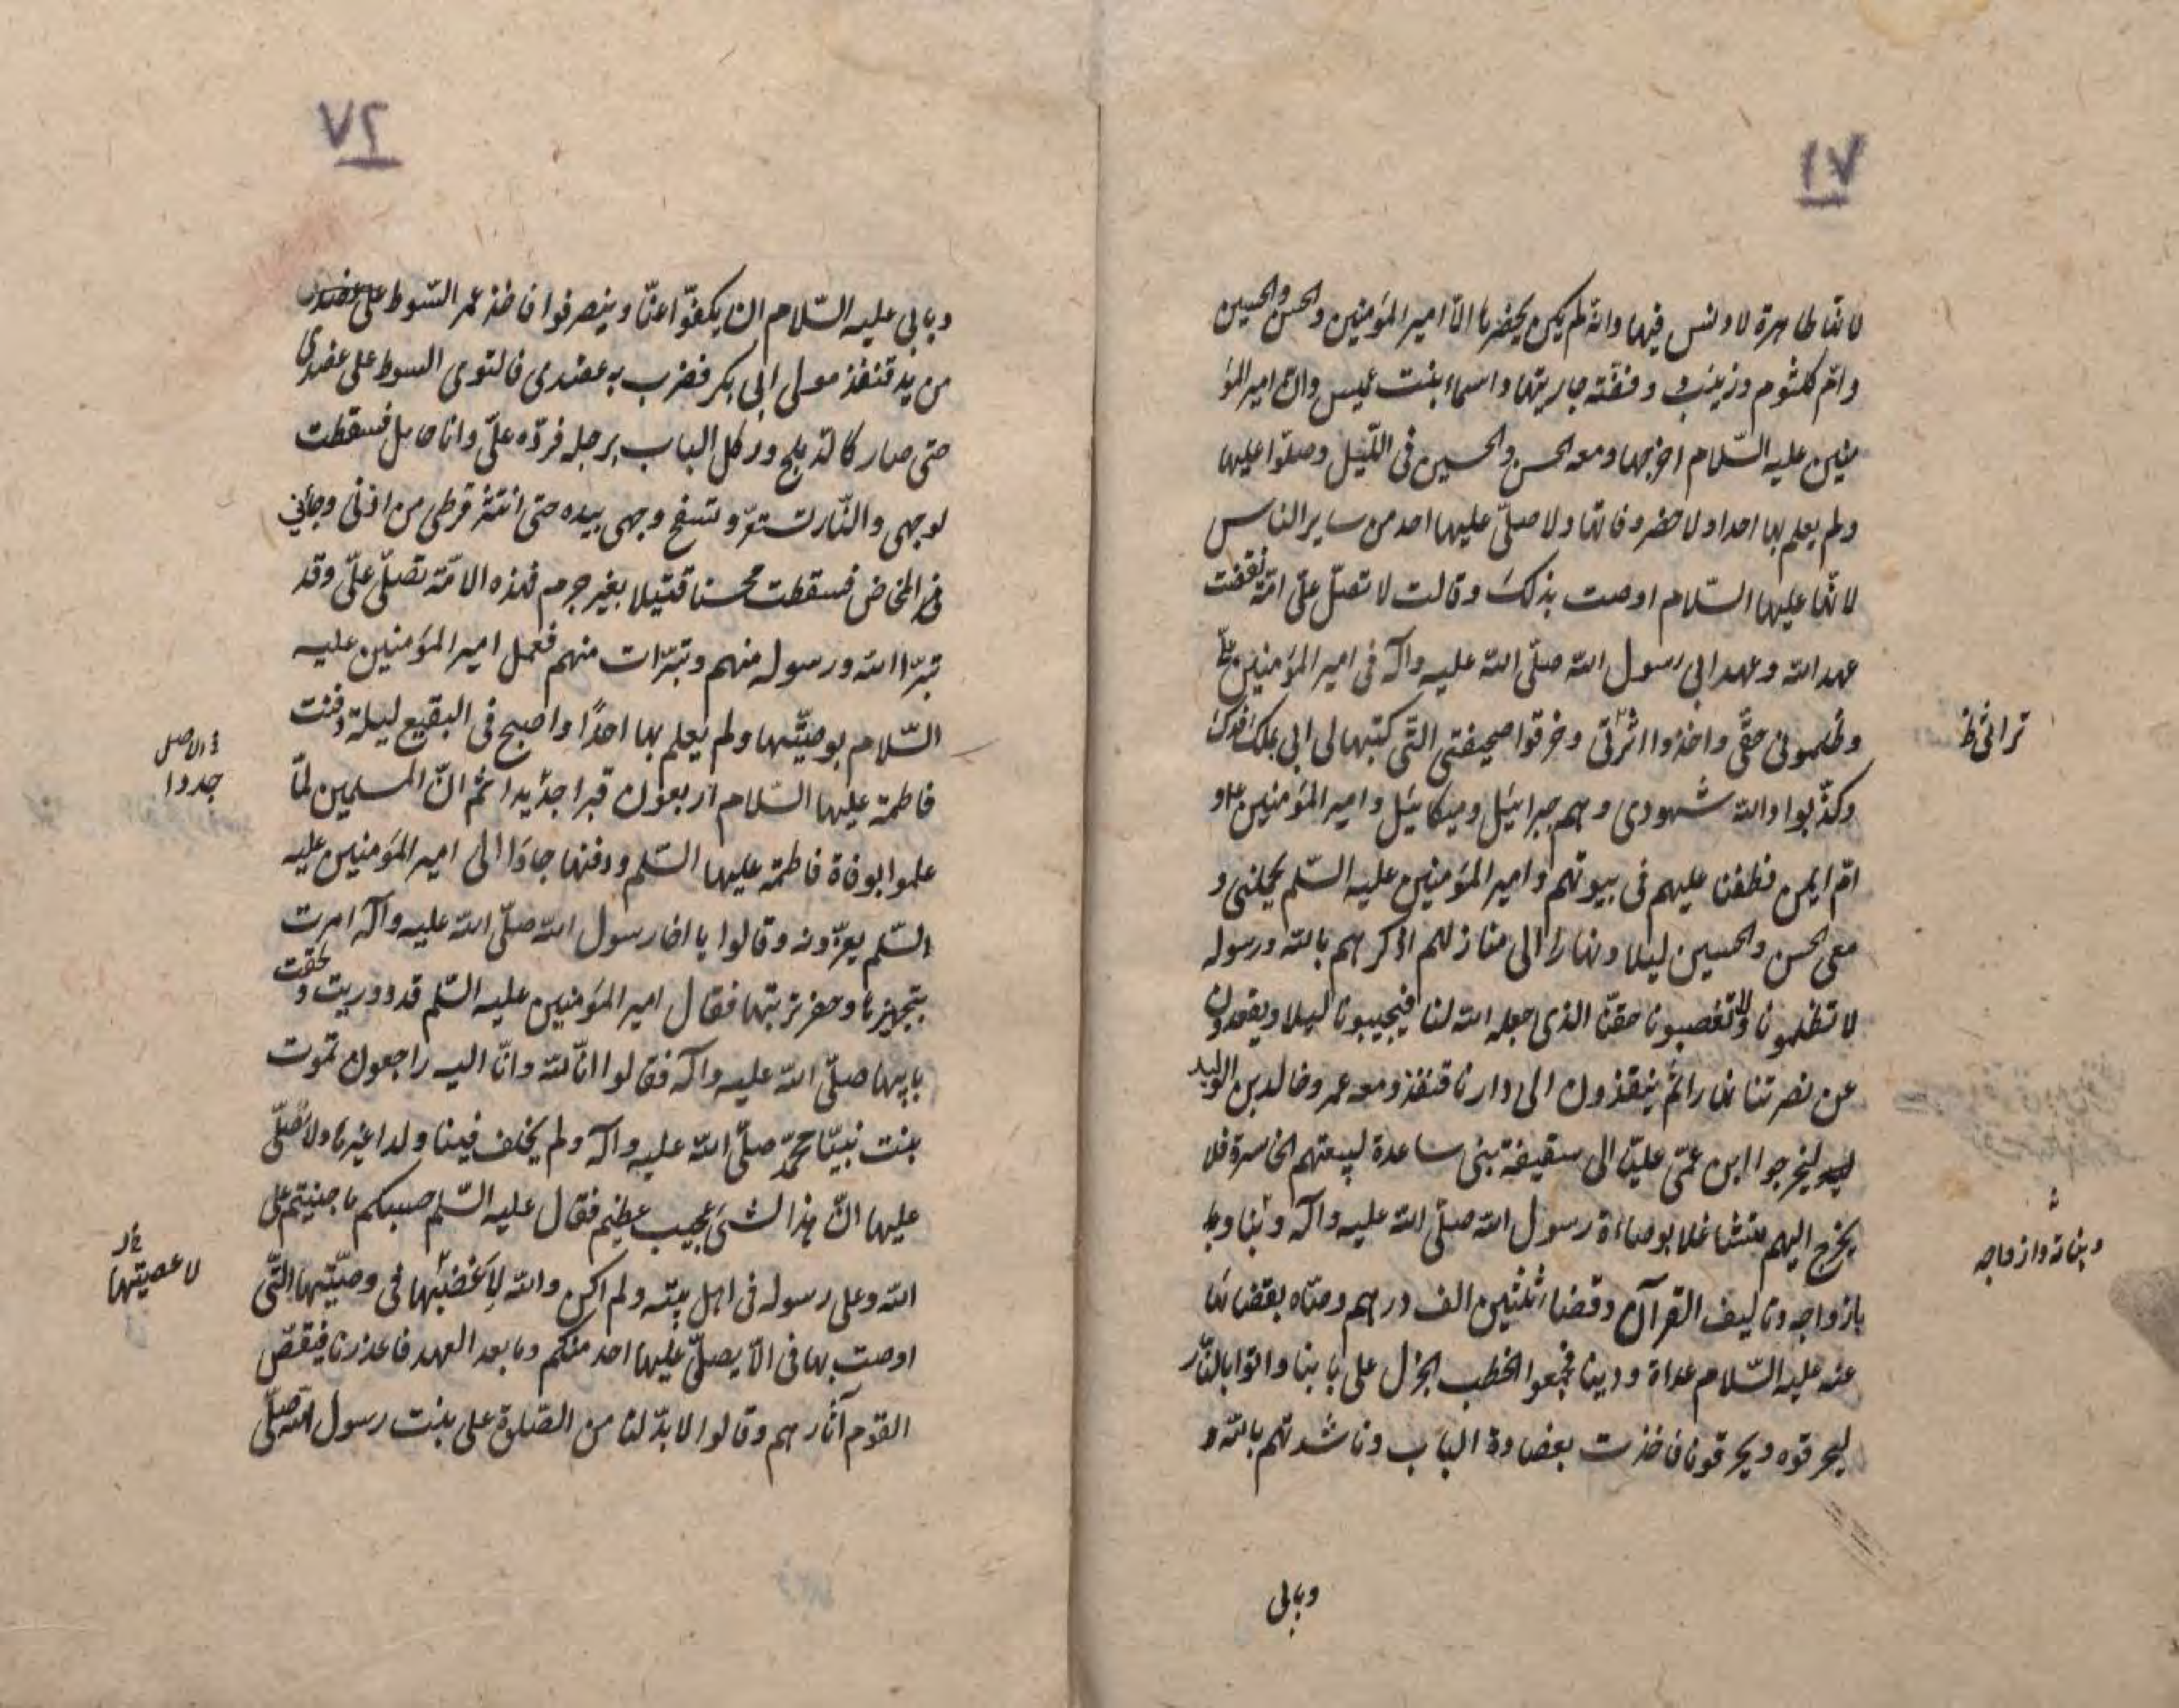 ٧١
لانها طاهرة لا دنس فيها وانه لم يكن يحضرها الا امير المؤمنين والحسن والحسين
وام كلثوم وزينب وفضّة جاريتها واسماء بنت عميس وان امير المؤ
منين عليه السّلام اخرجها ومعه الحسن والحسين فى اللّيل وصلّوا عليها
ولم يعلم بها احدا ولا حضر وفاتها ولا صلّى عليها احد من ساير الناس
لانها عليها السّلام اوصت بذلك وقالت لا تصلّ علىّ امّة نقضت
عهد الله وعهد ابى رسول الله صلّى الله عليه وآله فى امير المؤمنين ع
وظلمونى حقّى واخذوا ارثى وخرقوا صحيفتى التّى كتبها لى ابى بملك فدك
تراثى ظ
وكذّبوا والله شهودى وهم جبرائيل وميكائيل وامير المؤمنين ع و
امّ ايمن فطفت عليهم فى بيوتهم وامير المؤمنين عليه السّلم يحملنى و
معى الحسن والحسين ليلا ونهارا الى منازلهم اذكرهم بالله ورسوله
لا تظلمونا ولا تغصبونا حقّنا الذى جعله الله لنا فيجيبونا ليلا ويقعدون
عن نصرتنا نهارا ثمّ ينفذون الى دارنا قنفذ ومعه عمر وخالد بن الوليد
ليخرجوا ابن عمّى عليّا الى سقيفة بنى ساعدة لبيعتهم الخاسرة فلا
يخرج اليهم متشاغلا بوصاة رسول الله صلّى الله عليه وآله و
وبناته وازواجه
بازواجه وتاليف القرآن وقضاء ثلثين الف درهم وصّاه بقضائها
عنه عليه السّلام عداة ودينا فجمعوا الحطب الجزل على بابنا واتوا بالنّار
ليحرقوه ويحرقونا فاخذت بعضادة الباب وناشدتهم بالله و
وبابى
٧٢
وبابى عليه السّلام ان يكفّوا عنّا وينصرفوا فاخذ عمر السّوط
من يد قنفذ مولى ابى بكر فضرب به عضدى فالتوى السوط على عضدى
حتى صار كالدملج وركل الباب برجله فردّه علىّ وانا حامل فسقطت
لوجهى والنّار تستعر وتسفح وجهى بيده حتى انتثر قرطى من اذنى وجائنى
المخاض فسقطت محسنا قتيلا بغير جرم فهذه الامّة تصلّى علىّ وقد
تبرّا الله ورسوله منهم وتبرّات منهم فعمل امير المؤمنين عليه
السّلام بوصيّتها ولم يعلم بها احدًا واصبح فى البقيع ليلة دفنت
فى الاصل
جددا
فاطمة عليها السّلام اربعون قبرا جديدا ثم انّ المسلمين لمّا
علموا بوفاة فاطمة عليها السّلم ودفنها جاؤا الى امير المؤمنين عليه
السّلم يعزّونه وقالوا يا اخا رسول الله صلّى الله عليه وآله امرت
بتجهيزها وحفر تربتها فقال امير المؤمنين عليه السّلم قد ووريت ولحقت
بابيها صلّى الله عليه وآله فقالوا انّا لله وانّا اليه راجعون تموت
بنت نبيّنا محمّد صلّى الله عليه وآله ولم يخلف فينا ولدا غيرها ولا نصلّى
عليها انّ هذا لشىء عجيب عظيم فقال عليه السّلم حسبكم ما جنيتم على
الله وعلى رسوله فى اهل بيته ولم اكن والله لاغضبها فى وصيّتها التّى
لا عصيتها
اوصت بها فى الّا يصلّى عليها احد منكم وما بعد العهد فاعذرنا فنفض
القوم آثارهم وقالوا لا بدّ لنا من الصّلوة على بنت رسول الله صلّى